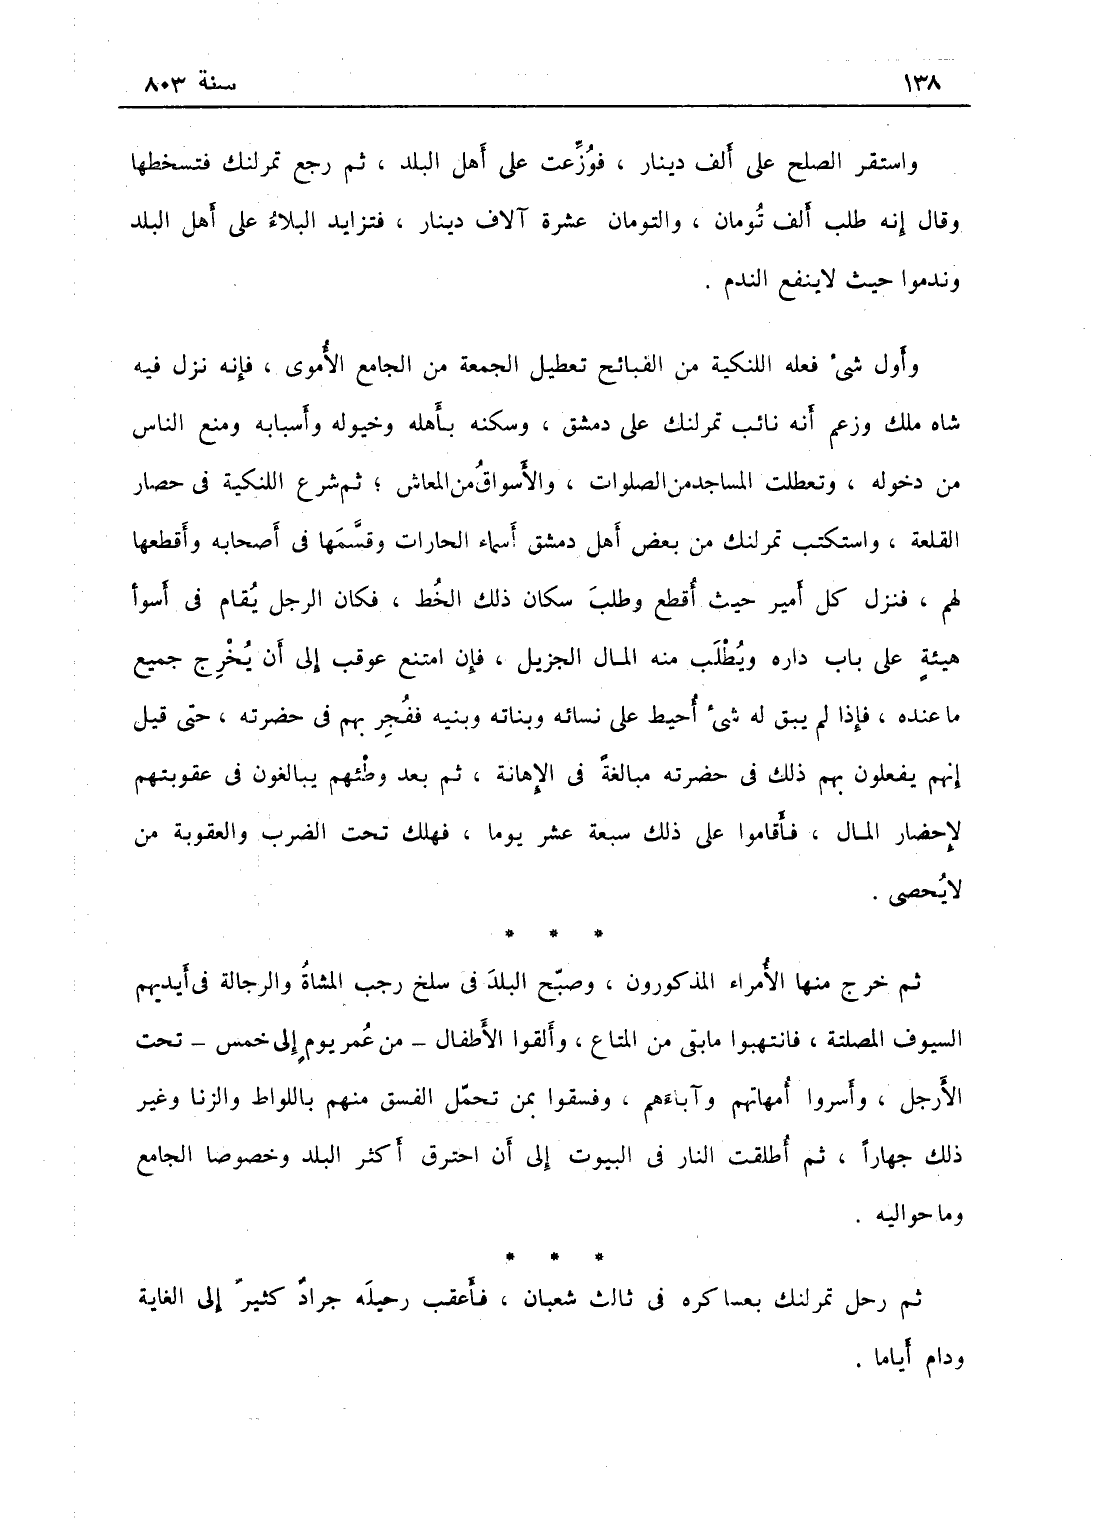 ١٣٨ سنة ٨٠٣
واستقر الصلح على أَلف دينار ، فوُزِّعت على أَهل البلد ، ثم رجع تمرلنك فتسخطها
وقال إنه طلب أَلف تُومان ، والتومان عشرة آلاف دينار ، فتزايد البلاءُ على أَهل البلد
وندموا حيث لاينفع الندم .
وأَول شىءٍ فعله اللنكية من القبائح تعطيل الجمعة من الجامع الأُموى ، فإنه نزل فيه
شاه ملك وزعم أَنه نائب تمرلنك على دمشق ، وسكنه بأَهله وخيوله وأَسبابه ومنع الناس
من دخوله ، وتعطلت المساجد من الصلوات ، والأَسواقُ من المعاش ؛ ثم شرع اللنكية فى حصار
القلعة ، واستكتب تمرلنك من بعض أَهل دمشق أَسماء الحارات وقسَّمَها فى أَصحابه وأَقطعها
لهم ، فنزل كل أَمير حيث أُقطع وطلبَ سكان ذلك الخُط ، فكان الرجل يُقام فى أَسوأ
هيئةٍ على باب داره ويُطْلَب منه المال الجزيل ، فإن امتنع عوقب إلى أَن يُخْرِج جميع
ما عنده ، فإذا لم يبق له شىءٌ أُحيط على نسائه وبناته وبنيه ففُجِر بهم فى حضرته ، حتى قيل
إنهم يفعلون بهم ذلك فى حضرته مبالغةً فى الإهانة ، ثم بعد وطْئهم يبالغون فى عقوبتهم
لإحضار المال ، فأَقاموا على ذلك سبعة عشر يوما ، فهلك تحت الضرب والعقوبة من
لايُحصى .
* * *
ثم خرج منها الأُمراء المذكورون ، وصبّح البلدَ فى سلخ رجب المشاةُ والرجالة فى أَيديهم
السيوف المصلتة ، فانتهبوا مابقى من المتاع ، وأَلقوا الأَطفال – من عُمر يومٍ إلى خمس – تحت
الأَرجل ، وأَسروا أُمهاتهم وآباءَهم ، وفسقوا بمن تحمّل الفسق منهم باللواط والزنا وغير
ذلك جهاراً ، ثم أُطلقت النار فى البيوت إلى أَن احترق أَكثر البلد وخصوصا الجامع
وما حواليه .
* * *
ثم رحل تمرلنك بعساكره فى ثالث شعبان ، فأَعقب رحيلَه جرادٌ كثيرٌ إلى الغاية
ودام أَياما .